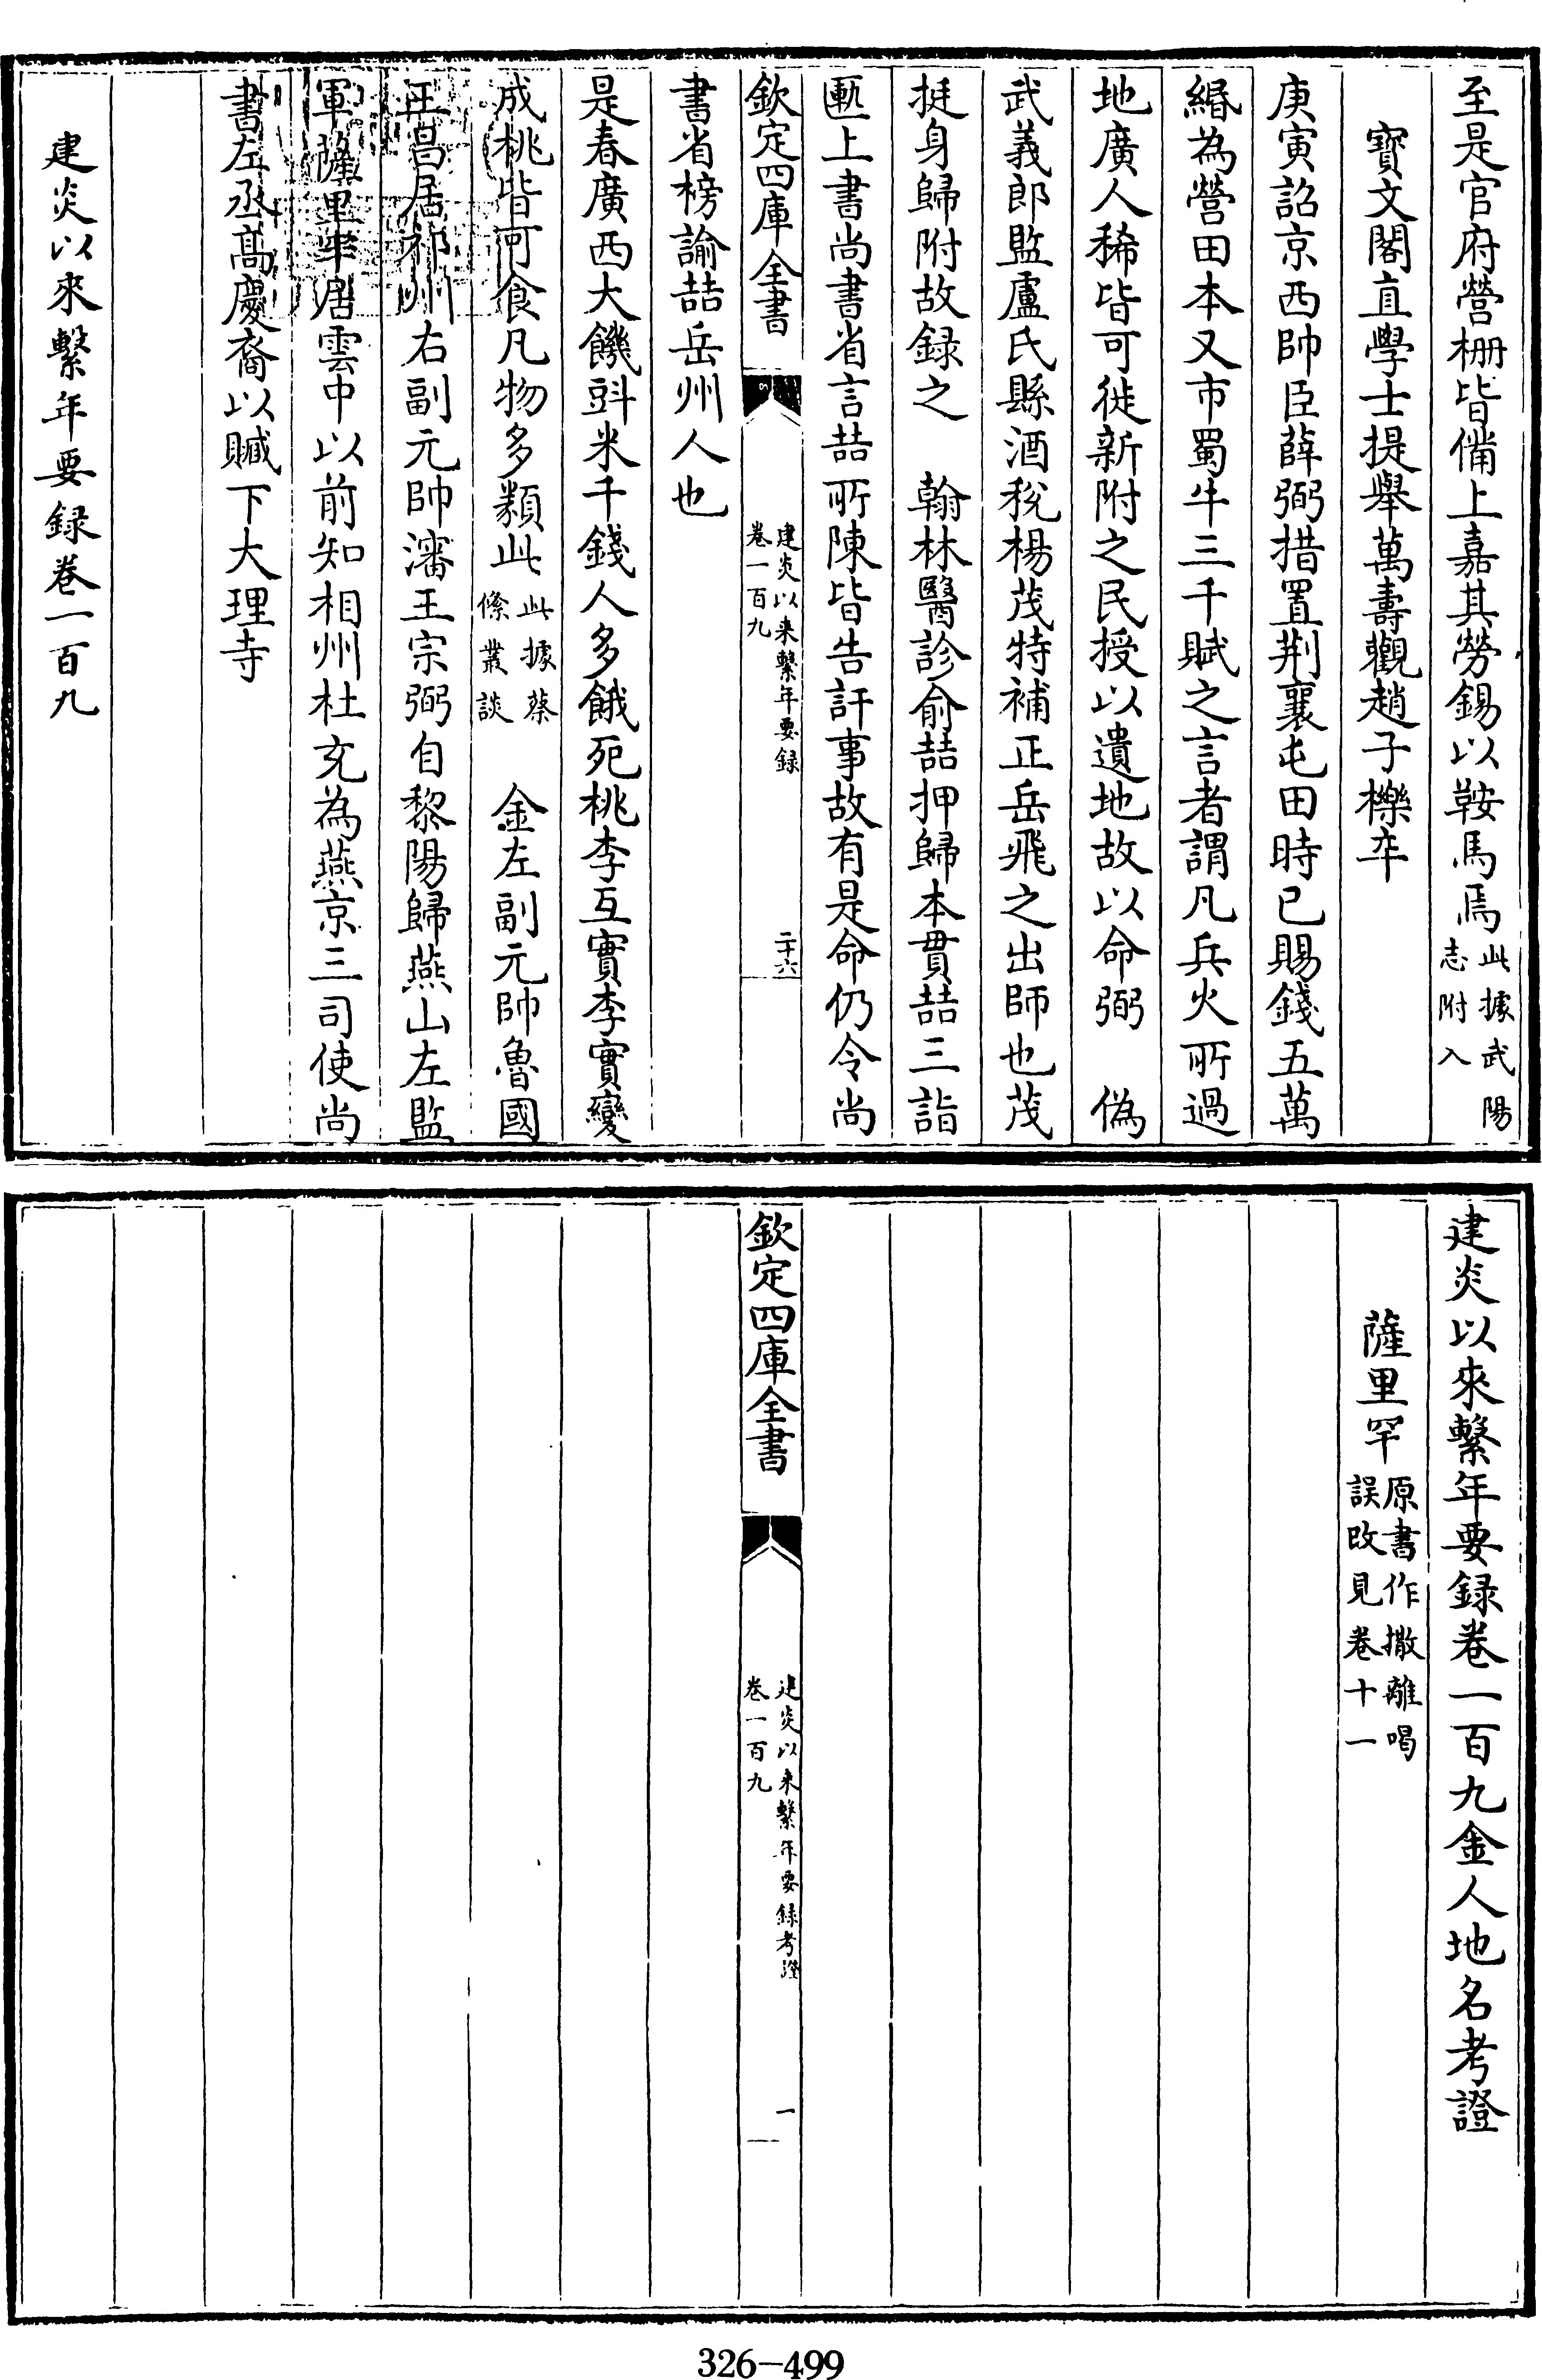 至是官府營柵皆備上嘉其勞錫以鞍馬焉此據武陽志附入
寳文閣直學士提舉萬壽觀趙子櫟卒
庚寅詔京西帥臣薛弼措置荆襄屯田時已賜錢五萬
緡為營田本又市蜀牛三千賦之言者謂凡兵火所過
地廣人稀皆可徙新附之民授以遺地故以命弼　偽
武義郎監盧氏縣酒稅楊茂特補正岳飛之出師也茂
挺身歸附故録之　翰林醫診俞喆押歸本貫喆三詣
匭上書尚書省言喆所陳皆告訐事故有是命仍令尚
欽定四庫全書
建炎以来繫年要録
卷一百九
二十六
書省榜諭喆岳州人也
是春廣西大饑斗米千錢人多餓死桃李互實李實變
成桃皆可食凡物多類此此據蔡絛叢談　金左副元帥魯國
王昌居祁州右副元帥瀋王宗弼自黎陽歸燕山左監
軍薩里罕居雲中以前知相州杜充為燕京三司使尚
書左丞髙慶裔以贓下大理寺
建炎以來繫年要録卷一百九
建炎以來繫年要録卷一百九金人地名考證
薩里罕原書作撒離喝誤改見卷十一
欽定四庫全書
建炎以来繫年要録考證
卷一百九
一
326-499